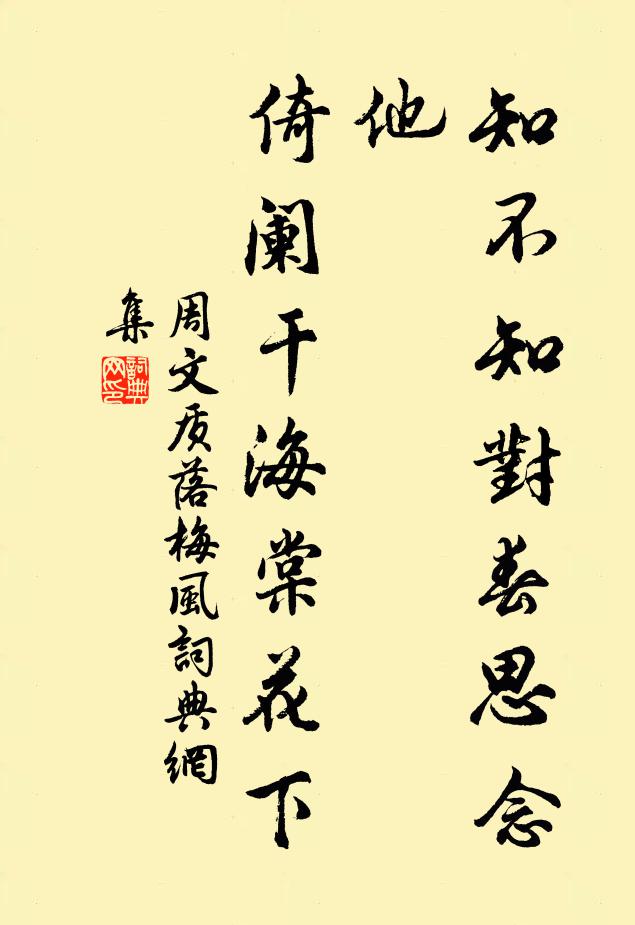 知不知對春思念
他
倚闌干海棠花下
周文质落梅風詞典網
集
詞典
网印